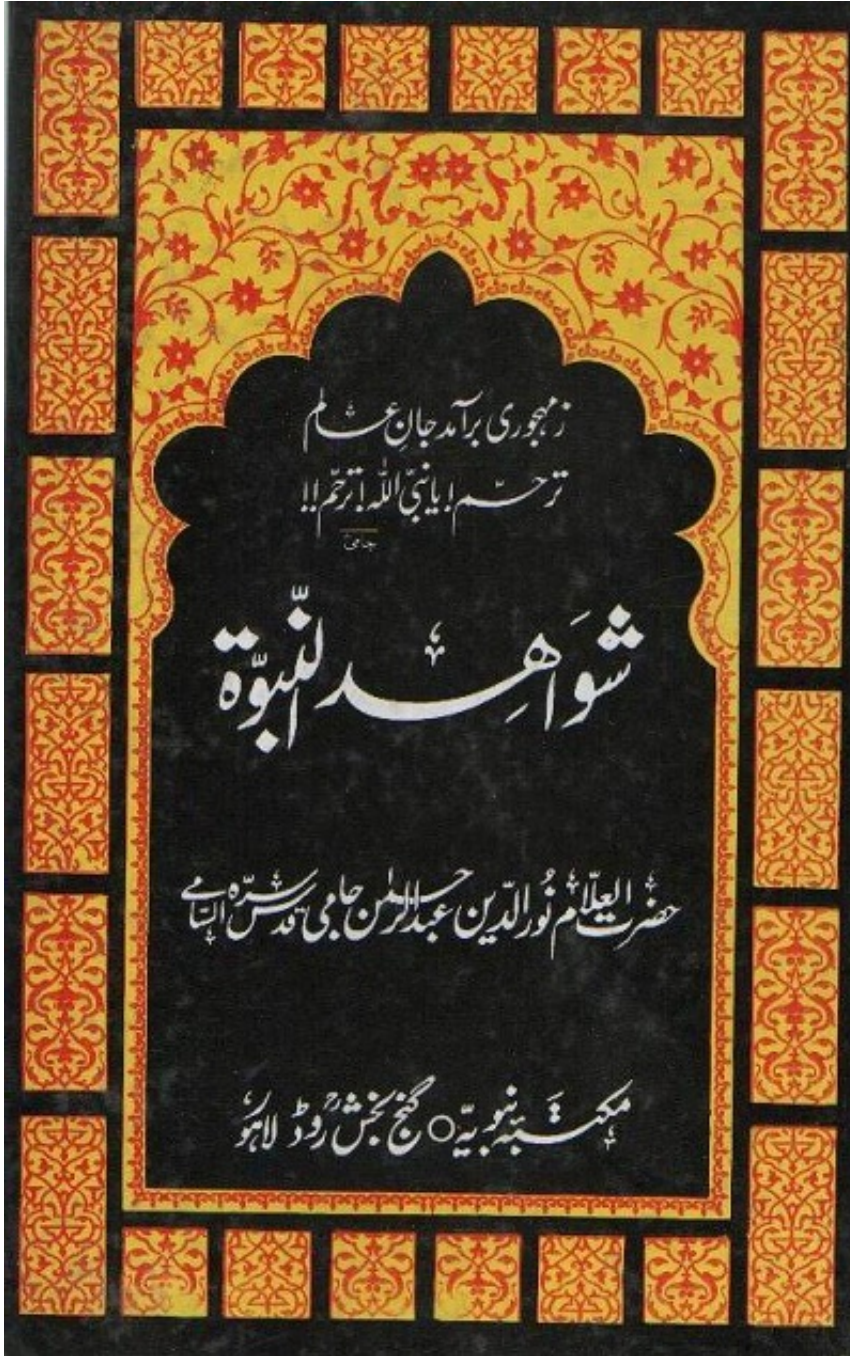 ز مہجوری برآمد جانِ عالم
ترحّم! یا نبیّ اللہ! ترحّم!!
جامیؒ
شَوَاهِد النّبوّة
حضرت العلّام نُور الدّین عبدالرحمٰن جامی قدس سرہ السّامی
مکتبۂ نبویہّ ○ گنج بخشؒ روڈ لاہور